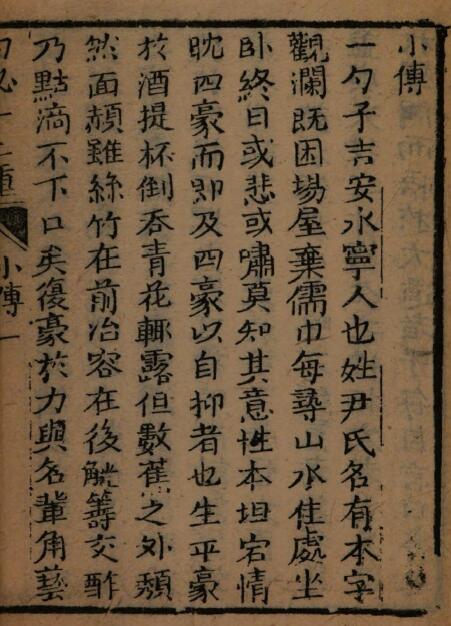 小傳
一勺子吉安永寧人也姓尹氏名有本字
觀瀾既困場屋棄儒巾每尋山水佳處坐
卧終日或悲或嘯莫知其意性本坦宕情
眈四豪而即及四豪以自抑者也生平豪
於酒提杯倒吞青花輒露但數蕉之外頹
然面頳雖絲竹在前冶容在後觥籌交酢
乃點滴不下口矣復豪於力與名輩角藝
小傳 一